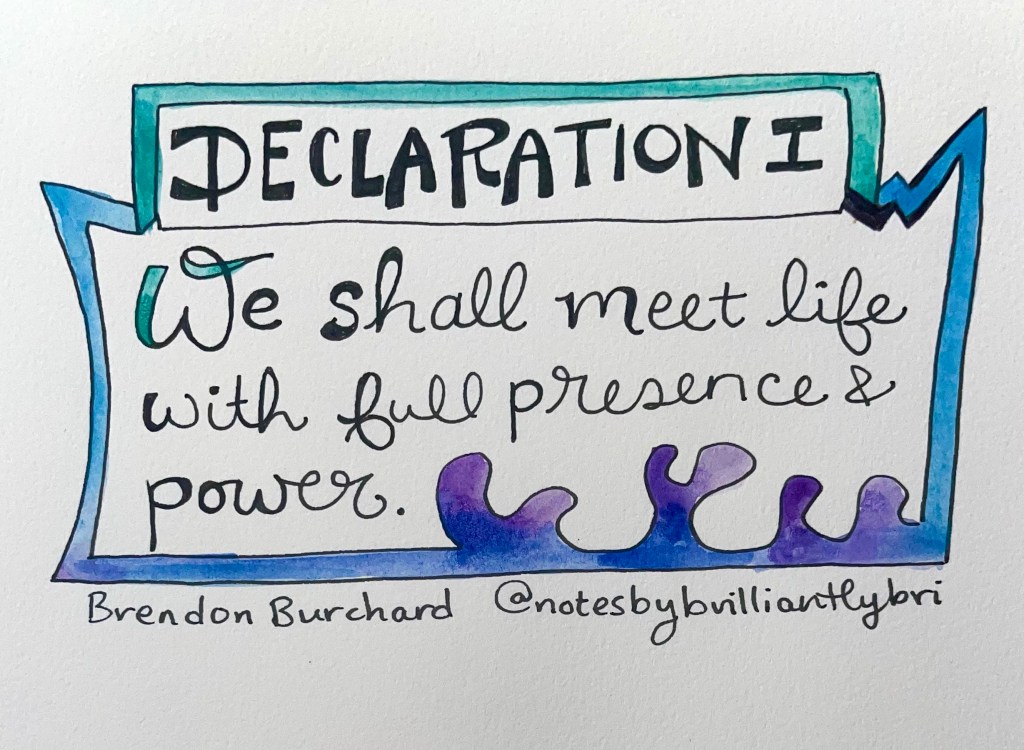 DECLARATION I
We shall meet life
with full presence &
power.
Brendon Burchard @notesbybrilliantlybri